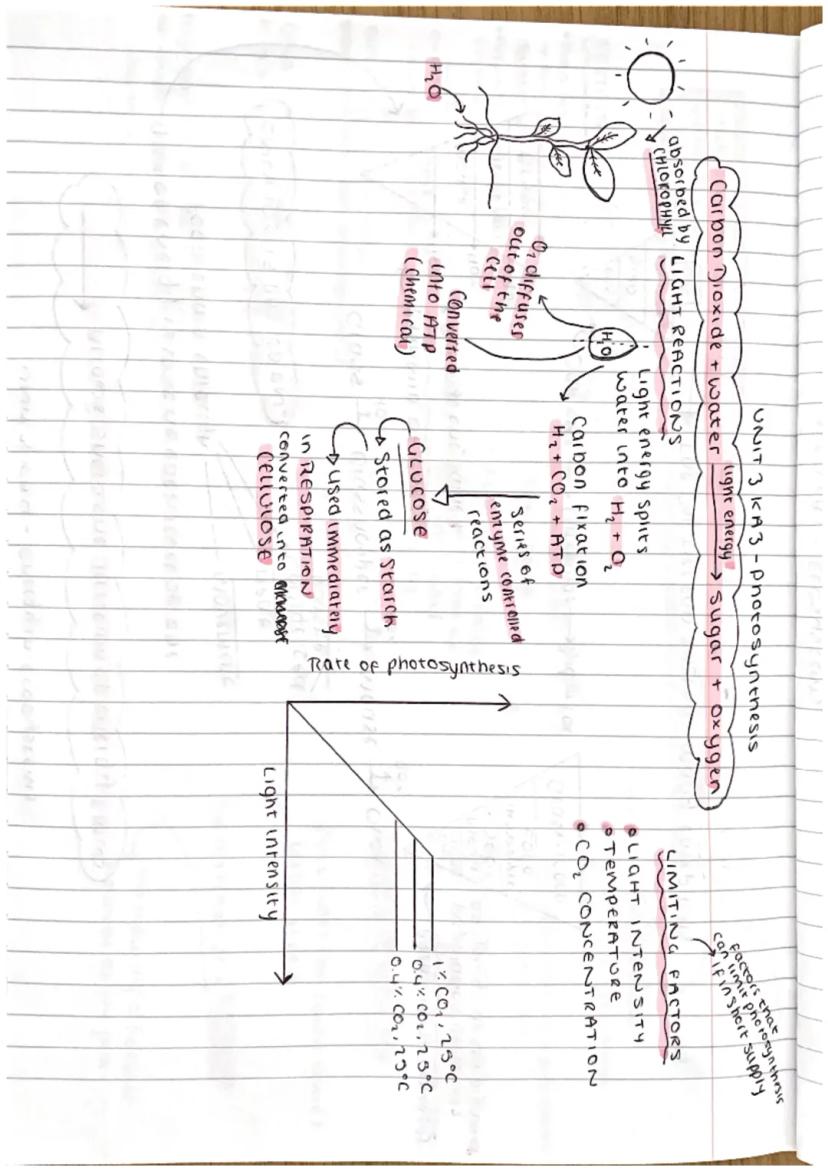 UNIT 3 KA3 - Photosynthesis
Carbon Dioxide + Water light energy → Sugar + Oxygen
absorbed by
CHLOROPHYLL
H₂O
LIGHT REACTIONS
Light energy splits
water into H₂ + O₂
H₂O
O₂ diffuses
out of the
cell
Converted
into ATP
(chemical)
Carbon fixation
H₂ + CO₂ + ATP
series of
enzyme controlled
reactions
GLUCOSE
Stored as Starch
used immediately
in RESPIRATION
converted into
CELLULOSE
factors that
can limit photosynthesis
if in short supply
LIMITING FACTORS
• LIGHT INTENSITY
• TEMPERATURE
• CO₂ CONCENTRATION
Rate of photosynthesis
1% CO₂, 25°C
0.4% CO₂, 25°C
0.4% CO₂, 25°C
Light intensity